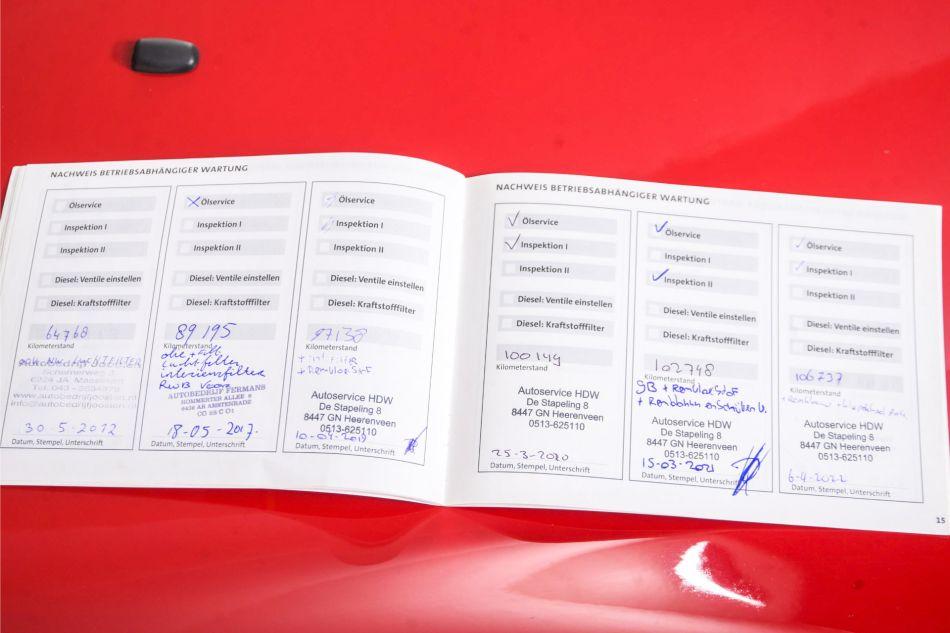 NACHWEIS BETRIEBSABHÄNGIGER WARTUNG
Ölservice
Inspektion I
Inspektion II
Diesel: Ventile einstellen
Diesel: Kraftstofffilter
64768
Kilometerstand
30-5-2012
Datum, Stempel, Unterschrift
Ölservice
Inspektion I
Inspektion II
Diesel: Ventile einstellen
Diesel: Kraftstofffilter
89195
Kilometerstand
olie + filt
Luchtfilter
interieurfilter
AUTOBEDRIJF FERMANS
HOMMERTER ALLEE
18-05-2017.
Datum, Stempel, Unterschrift
Ölservice
Inspektion I
Inspektion II
Diesel: Ventile einstellen
Diesel: Kraftstofffilter
97138
Kilometerstand
+ Remvloeistof
Autoservice HDW
De Stapeling 8
8447 GN Heerenveen
0513-625110
Datum, Stempel, Unterschrift
NACHWEIS BETRIEBSABHÄNGIGER WARTUNG
Ölservice
Inspektion I
Inspektion II
Diesel: Ventile einstellen
Diesel: Kraftstofffilter
100149
Kilometerstand
Autoservice HDW
De Stapeling 8
8447 GN Heerenveen
0513-625110
25-3-2020
Datum, Stempel, Unterschrift
Ölservice
Inspektion I
Inspektion II
Diesel: Ventile einstellen
Diesel: Kraftstofffilter
102748
Kilometerstand
GB + Remvloeistof
+ Remblokken en Schijven V.
Autoservice HDW
De Stapeling 8
8447 GN Heerenveen
0513-625110
15-03-2021
Datum, Stempel, Unterschrift
Ölservice
Inspektion I
Inspektion II
Diesel: Ventile einstellen
Diesel: Kraftstofffilter
106737
Kilometerstand
Autoservice HDW
De Stapeling 8
8447 GN Heerenveen
0513-625110
6-4-2022
Datum, Stempel, Unterschrift
15